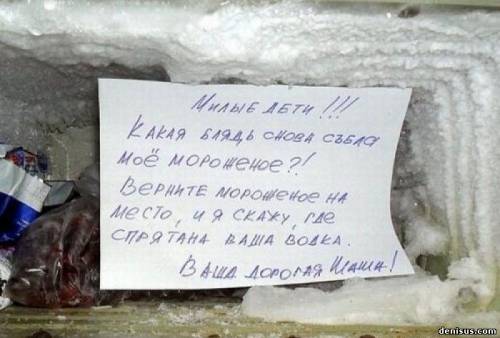 Милые дети!!!
Какая блядь снова съела
моё мороженое?!
Верните мороженое на
место, и я скажу, где
спрятана ваша водка.
Ваша дорогая Маша!
denisus.com